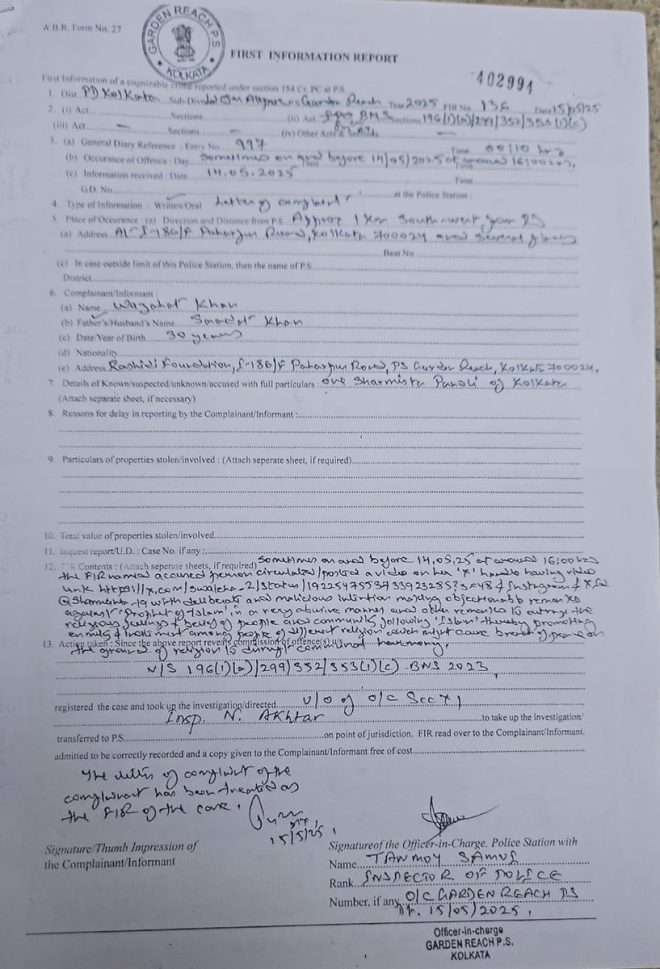 W.B.R. Form No. 27
GARDEN REACH P.S.
KOLKATA
FIRST INFORMATION REPORT
402991
First Information of a cognizable crime reported under section 154 Cr. PC at P.S.
1. Dist. PD Kolkata Sub-Divn. Garden Reach Year 2025 FIR No. 136 Date 15/05/25
2. (i) Act Sections (ii) Act BNS Sections 196(1)(a)/299/352/353(1)(c)
(iii) Act — Sections — (iv) Other Acts & —
3. (a) General Diary Reference : Entry No. 997 Time 00:10 hrs
(b) Occurance of Offence : Day Sometimes on and before 14/05/2025 at around 16:00 hrs.
(c) Information received : Date 14.05.2025 Time
G.D. No. at the Police Station :
4. Type of Information : Written/Oral Letter of complaint
5. Place of Occurance (a) Direction and Distance from P.S. Approx 1 km South west from PS
(a) Address At- J-186/F Paharpur Road, Kolkata 700024 and
Beat No
(c) In case outside limit of this Police Station, then the name of P.S.
District
6. Complainant/Informant :
(a) Name Wazahat Khan
(b) Father's/Husband's Name Saadat Khan
(c) Date/Year of Birth 30 years
(d) Nationality
(e) Address Rashidi Foundation, J-186/F Paharpur Road, PS Garden Reach, Kolkata 700024.
7. Details of Known/suspected/unknown/accused with full particulars : one Sharmista Panoli of Kolkata
(Attach separate sheet, if necessary)
8. Reasons for delay in reporting by the Complainant/Informant :
9. Particulars of properties stolen/involved : (Attach seperate sheet, if required)
10. Total value of properties stolen/involved
11. Inquest report/U.D. : Case No. if any :
12. FIR Contents : (Attach seperate sheets, if required) Sometimes on and before 14.05.25 at around 16:00 hrs
the FIR named accused person circulated/posted a video on her 'X' handle having video
link
with deliberate and malicious intention making objectionable remarks
against "Prophet of Islam" in a very abusive manner and other remarks to outrage the
religious feelings & belief of people and community following 'Islam' thereby promoting
enmity & among people of different religion which might cause breach of peace on
13. Action taken : Since the above report reveals commission of offence(s)
the ground of religion communal harmony.
U/S 196(1)(a)/299/352/353(1)(c) BNS 2023
registered the case and took up the investigation/directed U/O of O/C
Insp. N. Akhtar to take up the investigation/
transferred to P.S. on point of jurisdiction. FIR read over to the Complainant/Informant.
admitted to be correctly recorded and a copy given to the Complainant/Informant free of cost
The letter of complaint of the
complainant has been treated as
the FIR of the case.
15/5/25.
Signature/Thumb Impression of
the Complainant/Informant
Signature of the Officer-in-Charge, Police Station with
Name TANMOY
Rank INSPECTOR OF POLICE
Number, if any O/C GARDEN REACH PS
Dt. 15/05/2025.
Officer-in-charge
GARDEN REACH P.S.
KOLKATA